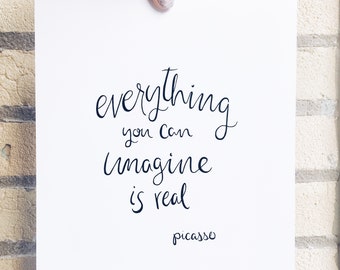 everything
you can
imagine
is real
picasso